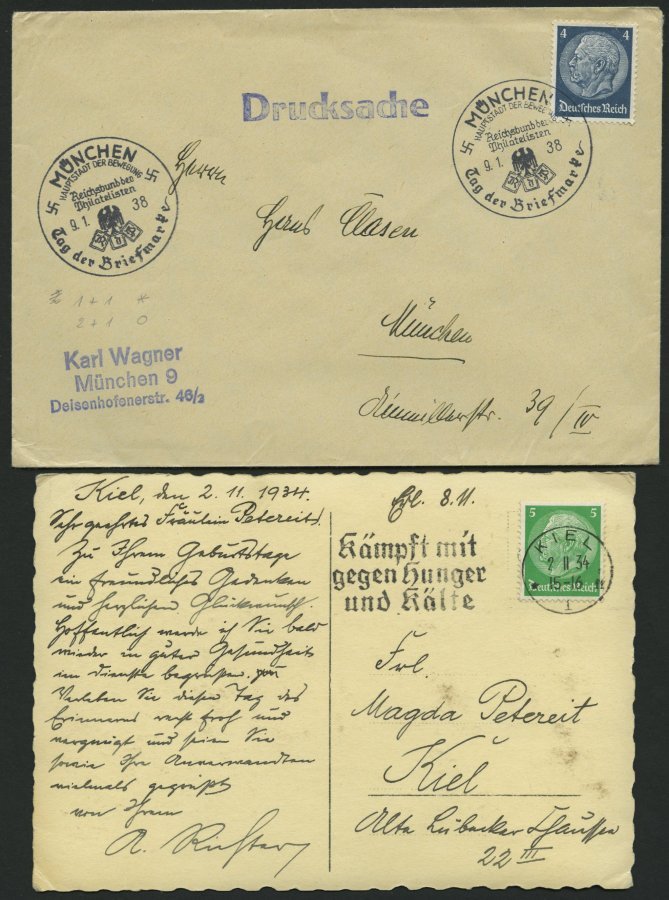 4 4
Deutsches Reich
Drucksache
MÜNCHEN
HAUPTSTADT DER BEWEGUNG
Reichsbund der
Philatelisten
9.1. 38
Tag der Briefmarke
MÜNCHEN
HAUPTSTADT DER BEWEGUNG
Reichsbund der
Philatelisten
9.1. 38
Tag der Briefmarke
Herrn
Hans Clasen
München
39/IV
1+1 *
2+1 O
Karl Wagner
München 9
Deisenhofenerstr. 46/2
Kiel, den 2.11.1934.
Sehr geehrtes Fräulein Petereit!
Zu Ihrem Geburtstage
ein freundliches Gedenken
und herzlichen Glückwunsch.
Hoffentlich werde ich Sie bald
wieder in guter Gesundheit
im Dienste begrüßen.
Verleben Sie diesen Tag des
Erinnerns recht froh und
vergnügt und seien Sie
sowie Ihre Anverwandten
vielmals gegrüßt
von Ihrem
A. Richter
8.11.
Kämpft mit
gegen Hunger
und Kälte
5 5
Deutsches Reich
KIEL
2.11.34
15-16
1
Frl.
Magda Petereit
Kiel
Alte Lübecker Chaussee
22 III